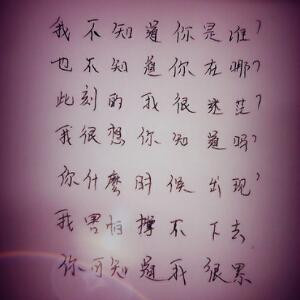 我不知道你是谁?
也不知道你在哪?
此刻的我很迷茫?
我很想你知道吗?
你什麼时候出现?
我害怕撑不下去
你可知道我很累